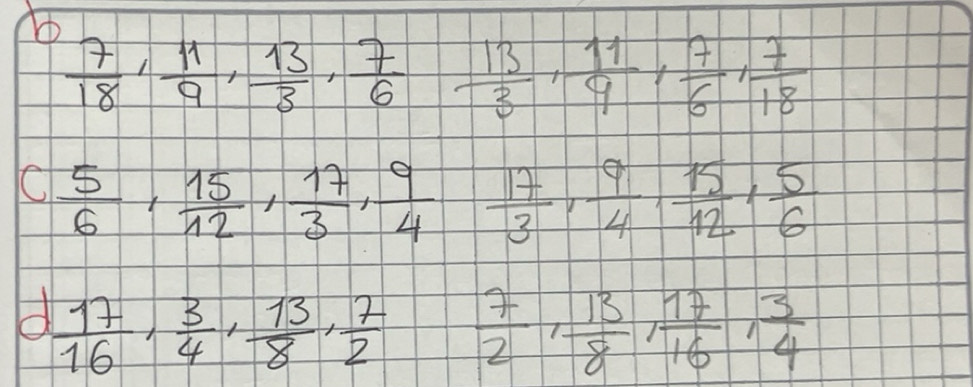 b 7/18, 11/9, 13/3, 7/6 13/3, 11/9, 7/6, 7/18
c 5/6, 15/12, 17/3, 9/4 17/3, 9/4, 15/12, 5/6
d 17/16, 3/4, 13/8, 7/2 7/2, 13/8, 17/16, 3/4